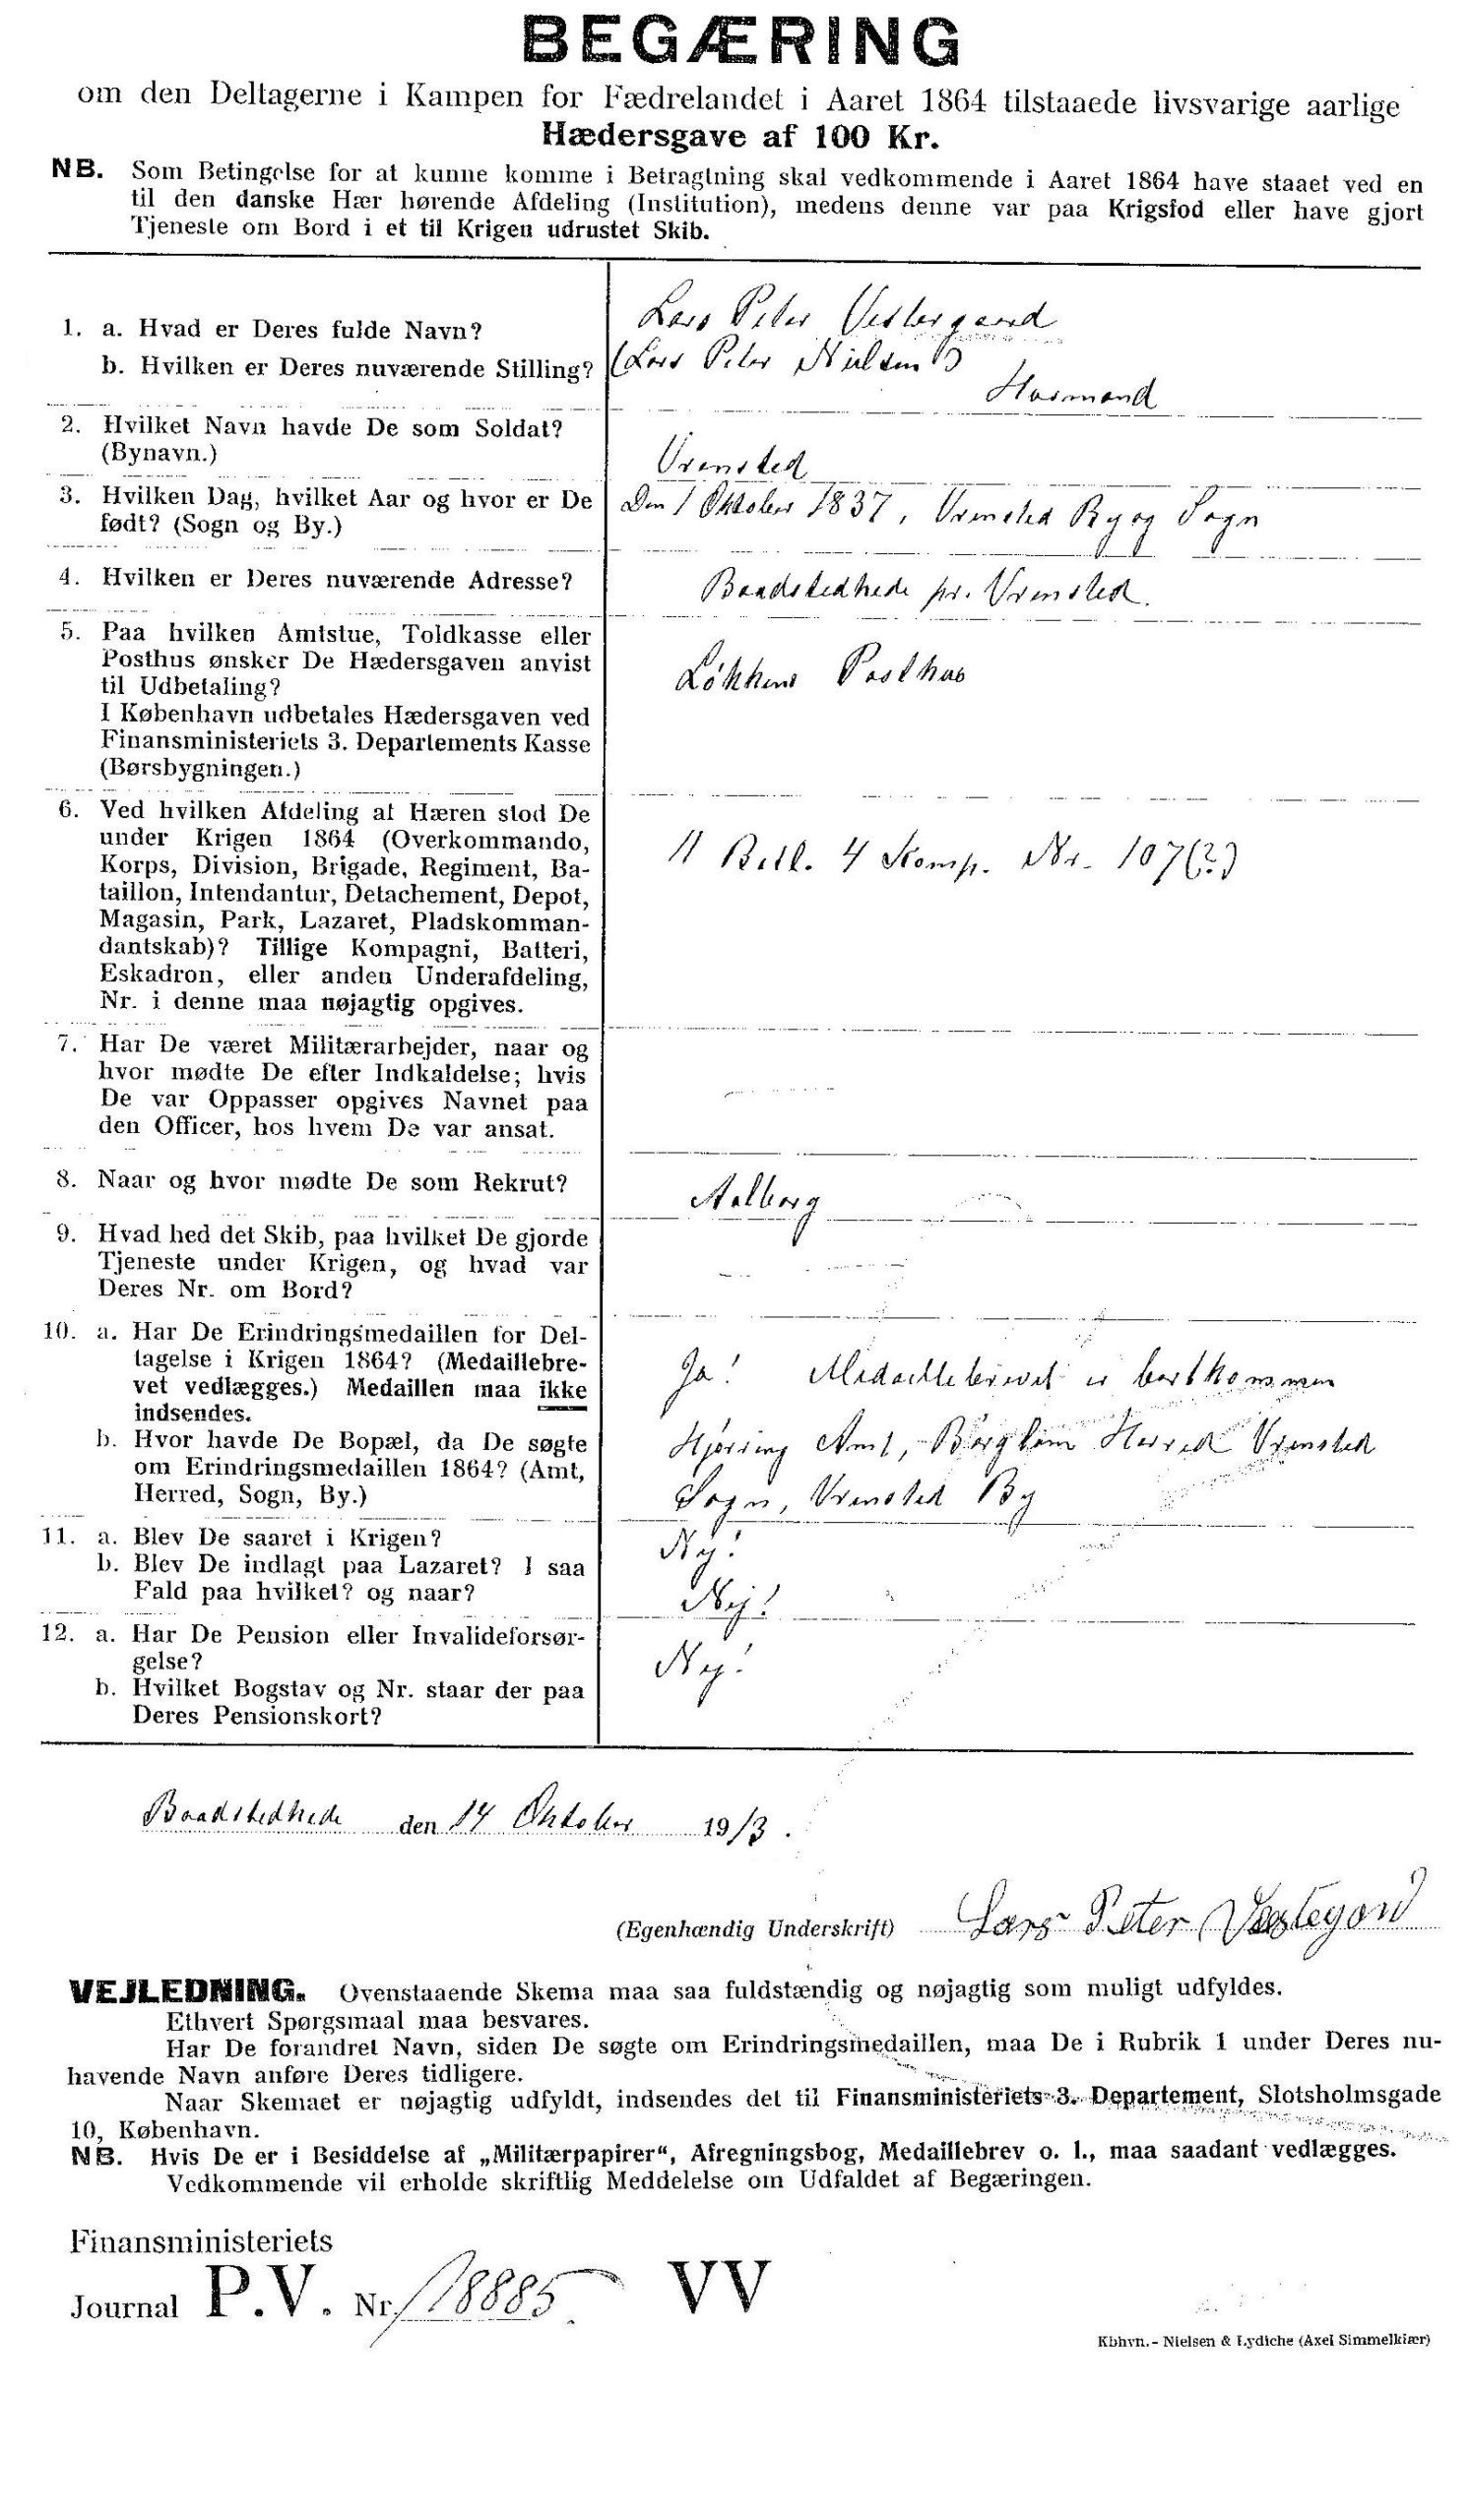 BEGÆRING
om den Deltagerne i Kampen for Fædrelandet i Aaret 1864 tilstaaede livsvarige aarlige
Hædersgave af 100 Kr.
NB. Som Betingelse for at kunne komme i Betragtning skal vedkommende i Aaret 1864 have staaet ved en
til den danske Hær hørende Afdeling (Institution), medens denne var paa Krigsfod eller have gjort
Tjeneste om Bord i et til Krigen udrustet Skib.
1. a. Hvad er Deres fulde Navn?
Lars Peter Vestergaard
b. Hvilken er Deres nuværende Stilling?
(Lars Peter Nielsen)
Husmand
2. Hvilket Navn havde De som Soldat?
(Bynavn.)
Vrensted
3. Hvilken Dag, hvilket Aar og hvor er De
født? (Sogn og By.)
Den 1 Oktober 1837, Vrensted By og Sogn
4. Hvilken er Deres nuværende Adresse?
Baadstedhede pr. Vrensted.
5. Paa hvilken Amtstue, Toldkasse eller
Posthus ønsker De Hædersgaven anvist
til Udbetaling?
I København udbetales Hædersgaven ved
Finansministeriets 3. Departements Kasse
(Børsbygningen.)
Løkkens Posthus
6. Ved hvilken Afdeling af Hæren stod De
under Krigen 1864 (Overkommando,
Korps, Division, Brigade, Regiment, Ba-
taillon, Intendantur, Detachement, Depot,
Magasin, Park, Lazaret, Pladskomman-
dantskab)? Tillige Kompagni, Batteri,
Eskadron, eller anden Underafdeling,
Nr. i denne maa nøjagtig opgives.
11 Batl. 4 Komp. Nr. 107(?)
7. Har De været Militærarbejder, naar og
hvor mødte De efter Indkaldelse; hvis
De var Oppasser opgives Navnet paa
den Officer, hos hvem De var ansat.
8. Naar og hvor mødte De som Rekrut?
Aalborg
9. Hvad hed det Skib, paa hvilket De gjorde
Tjeneste under Krigen, og hvad var
Deres Nr. om Bord?
10. a. Har De Erindringsmedaillen for Del-
tagelse i Krigen 1864? (Medaillebre-
vet vedlægges.) Medaillen maa ikke
indsendes.
Ja! Medaillebrevet er bortkommen
b. Hvor havde De Bopæl, da De søgte
om Erindringsmedaillen 1864? (Amt,
Herred, Sogn, By.)
Hjørring Amt, Børglum Herred Vrensted
Sogn, Vrensted By
11. a. Blev De saaret i Krigen?
Nej!
b. Blev De indlagt paa Lazaret? I saa
Fald paa hvilket? og naar?
Nej!
12. a. Har De Pension eller Invalideforsør-
gelse?
Nej!
b. Hvilket Bogstav og Nr. staar der paa
Deres Pensionskort?
Baadstedhede den 14 Oktober 1913.
(Egenhændig Underskrift) Lars Peter Vestegord
VEJLEDNING. Ovenstaaende Skema maa saa fuldstændig og nøjagtig som muligt udfyldes.
Ethvert Spørgsmaal maa besvares.
Har De forandret Navn, siden De søgte om Erindringsmedaillen, maa De i Rubrik 1 under Deres nu-
havende Navn anføre Deres tidligere.
Naar Skemaet er nøjagtig udfyldt, indsendes det til Finansministeriets 3. Departement, Slotsholmsgade
10, København.
NB. Hvis De er i Besiddelse af „Militærpapirer“, Afregningsbog, Medaillebrev o. l., maa saadant vedlægges.
Vedkommende vil erholde skriftlig Meddelelse om Udfaldet af Begæringen.
Finansministeriets
Journal P.V. Nr. 18885 VV
Kbhvn. - Nielsen & Lydiche (Axel Simmelkiær)